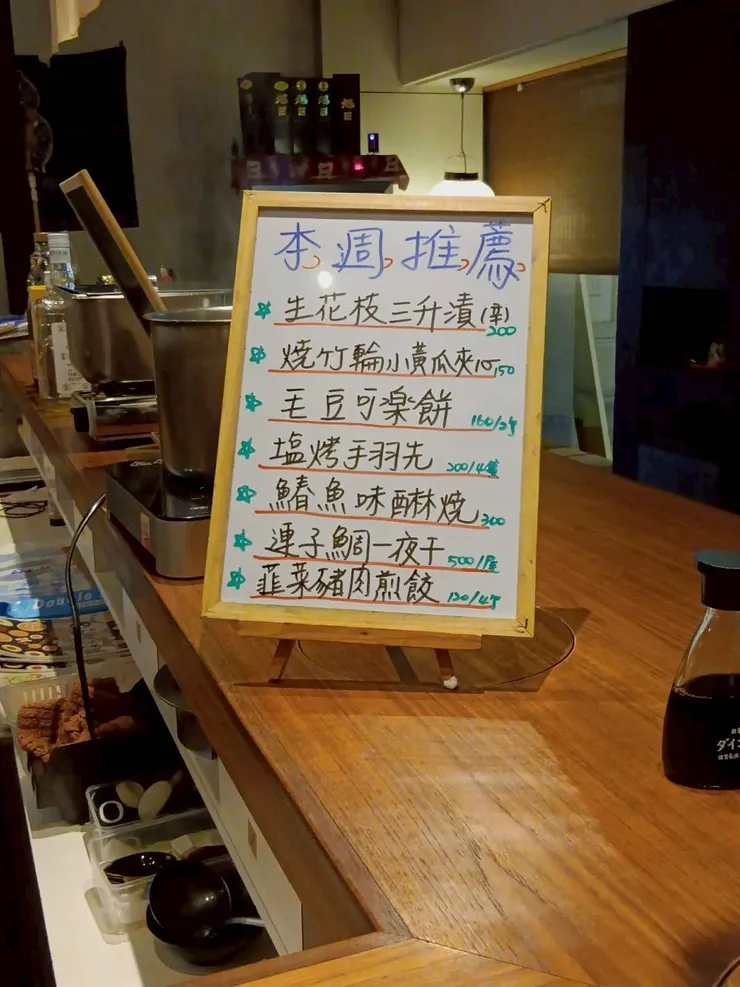 本週推薦
生花枝三升漬(辛) 200
燒竹輪小黃瓜夾心 150
毛豆可樂餅 160/2個
塩烤手羽先 200/4隻
鰆魚味醂燒 300
連子鯛一夜干 500/尾
韮菜豬肉煎餃 120/4個
Double